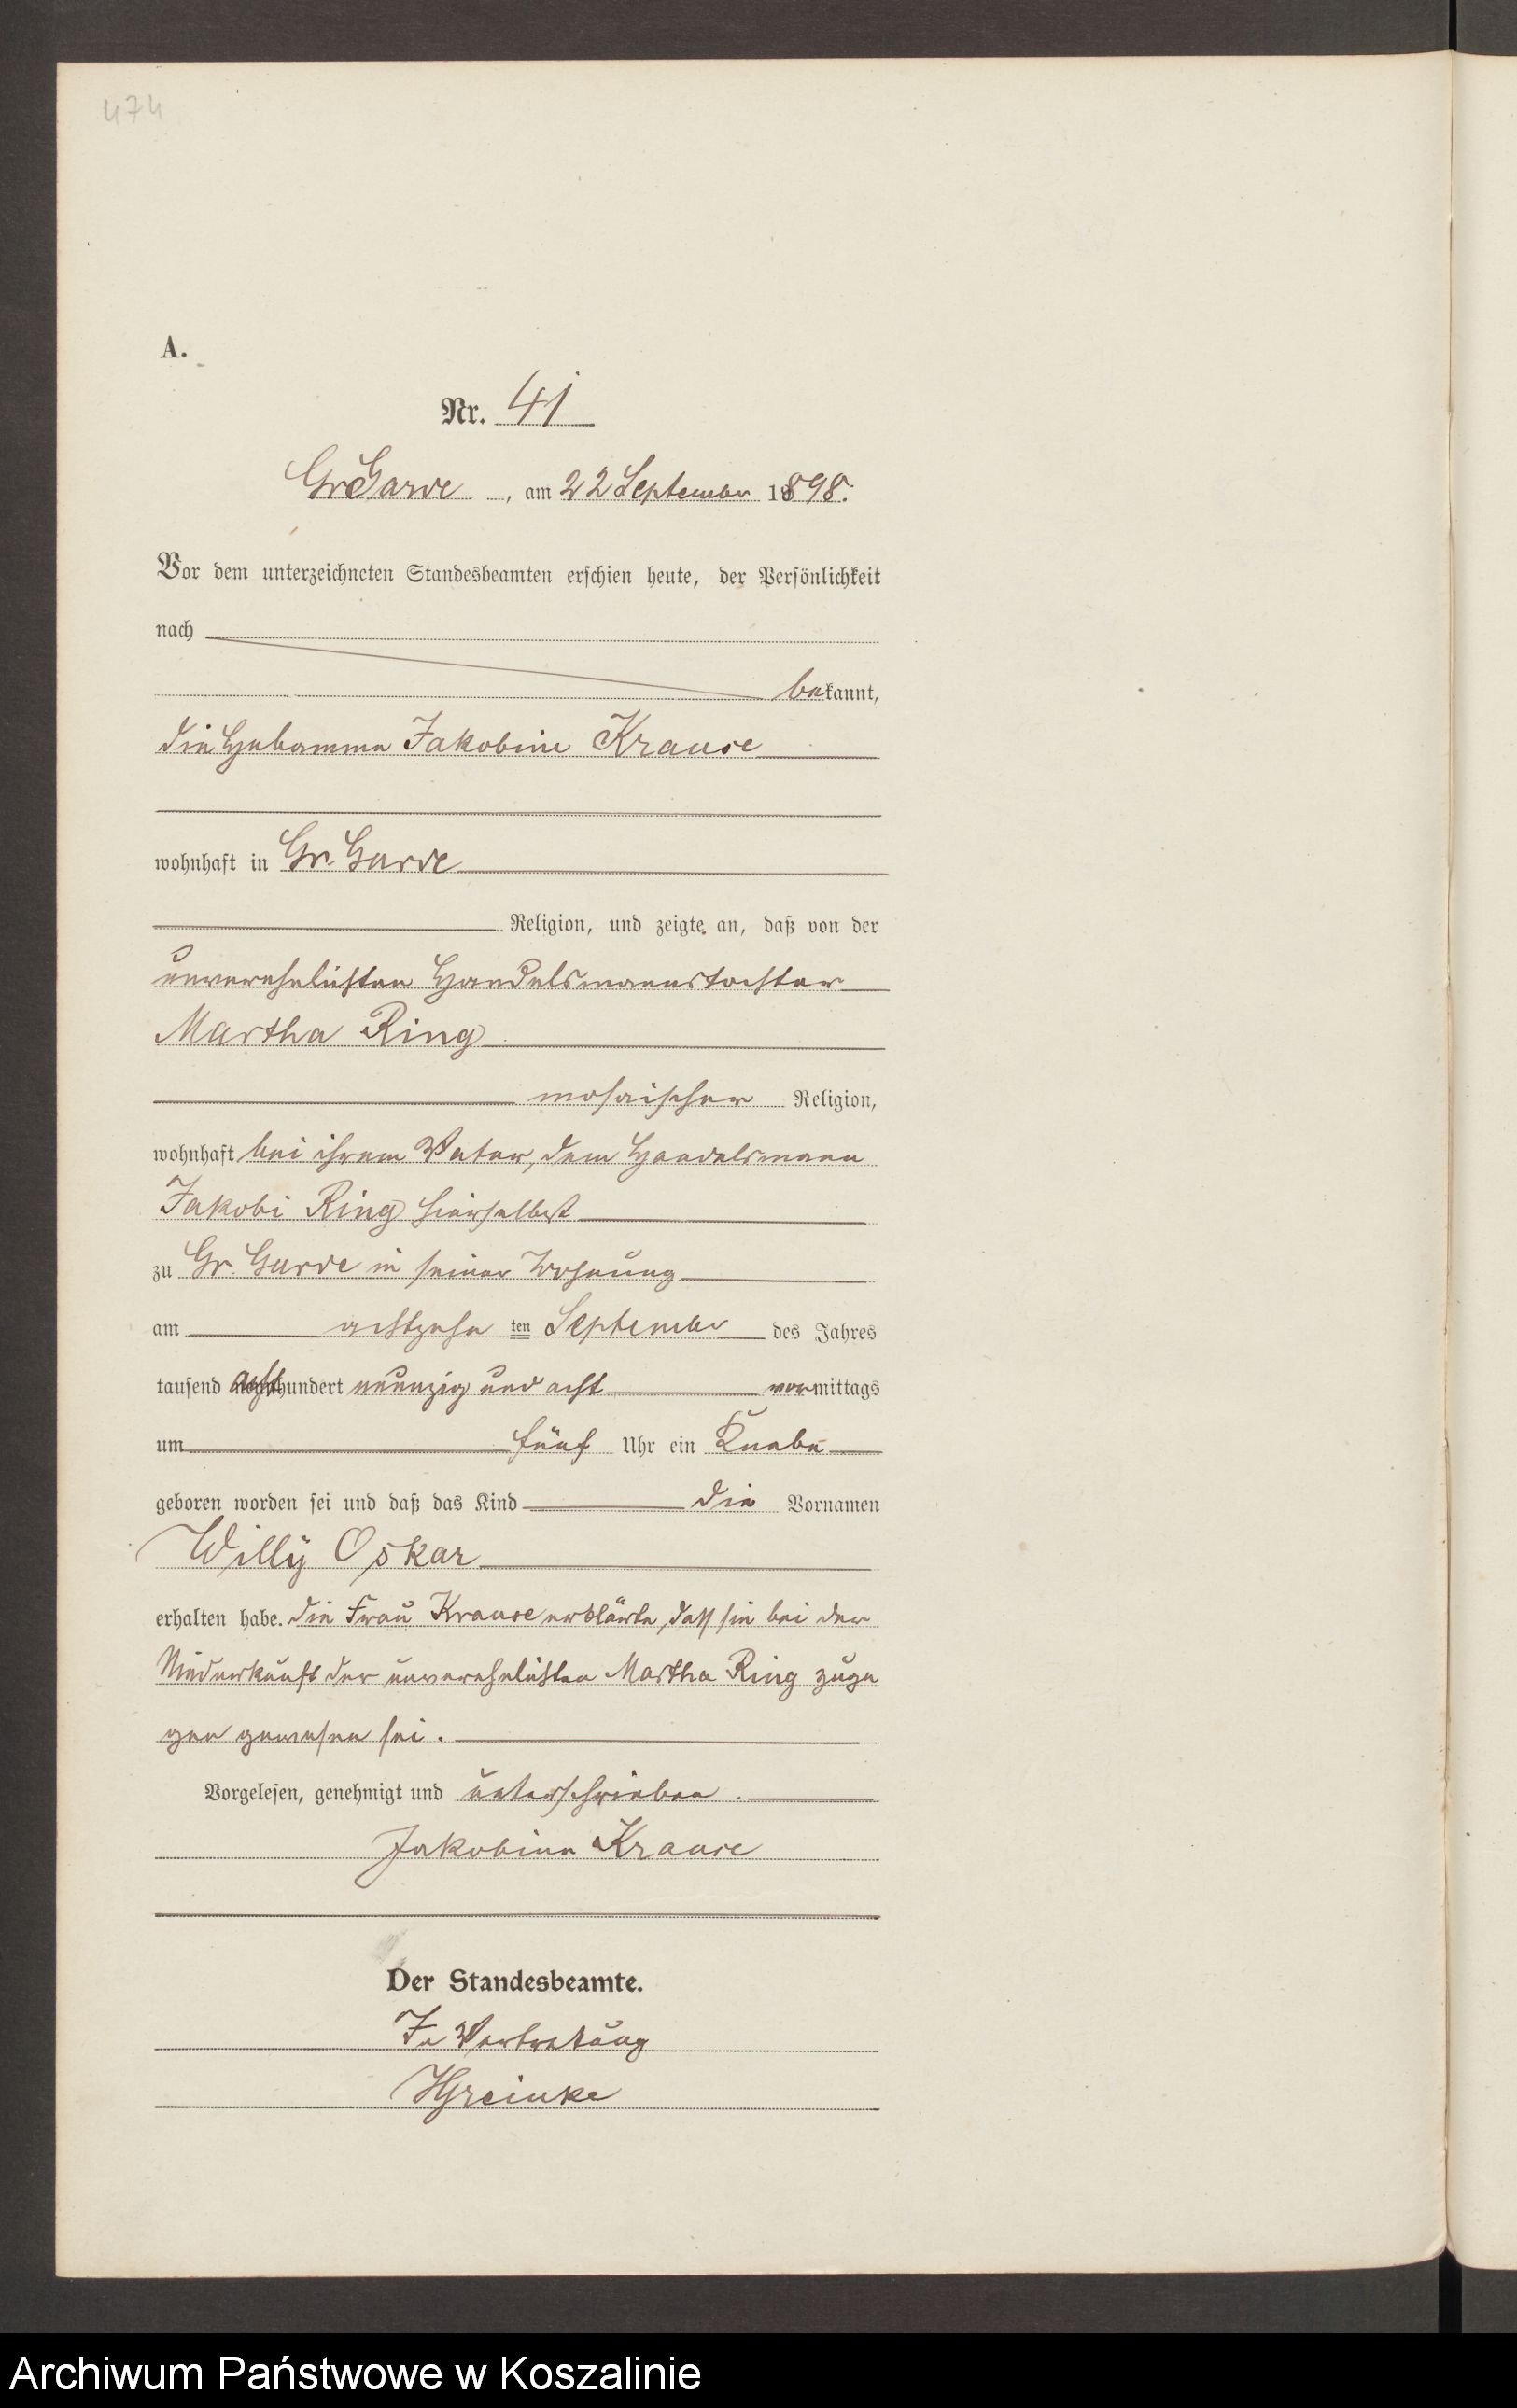 474
A.
Nr. 41
Gr Garde, am 22 September 1898.
Vor dem unterzeichneten Standesbeamten erschien heute, der Persönlichkeit
nach
bekannt,
die Hebamme Jakobine Krause
wohnhaft in Gr. Garde
Religion, und zeigte an, daß von der
unverehelichten Handelsmannstochter
Martha Ring
mosaischer Religion,
wohnhaft bei ihrem Vater, dem Handelsmann
Jakobi Ring hierselbst
zu Gr. Garde in seiner Wohnung
am achtzehn ten September des Jahres
tausend acht hundert neunzig und acht vormittags
um fünf Uhr ein Knabe
geboren worden sei und daß das Kind die Vornamen
Willy Oskar
erhalten habe. Die Frau Krause erklärte, daß sie bei der
Niederkunft der unverehelichten Martha Ring zuge
gen gewesen sei.
Vorgelesen, genehmigt und unterschrieben.
Jakobine Krause
Der Standesbeamte.
In Vertretung
HGreinke
Archiwum Państwowe w Koszalinie